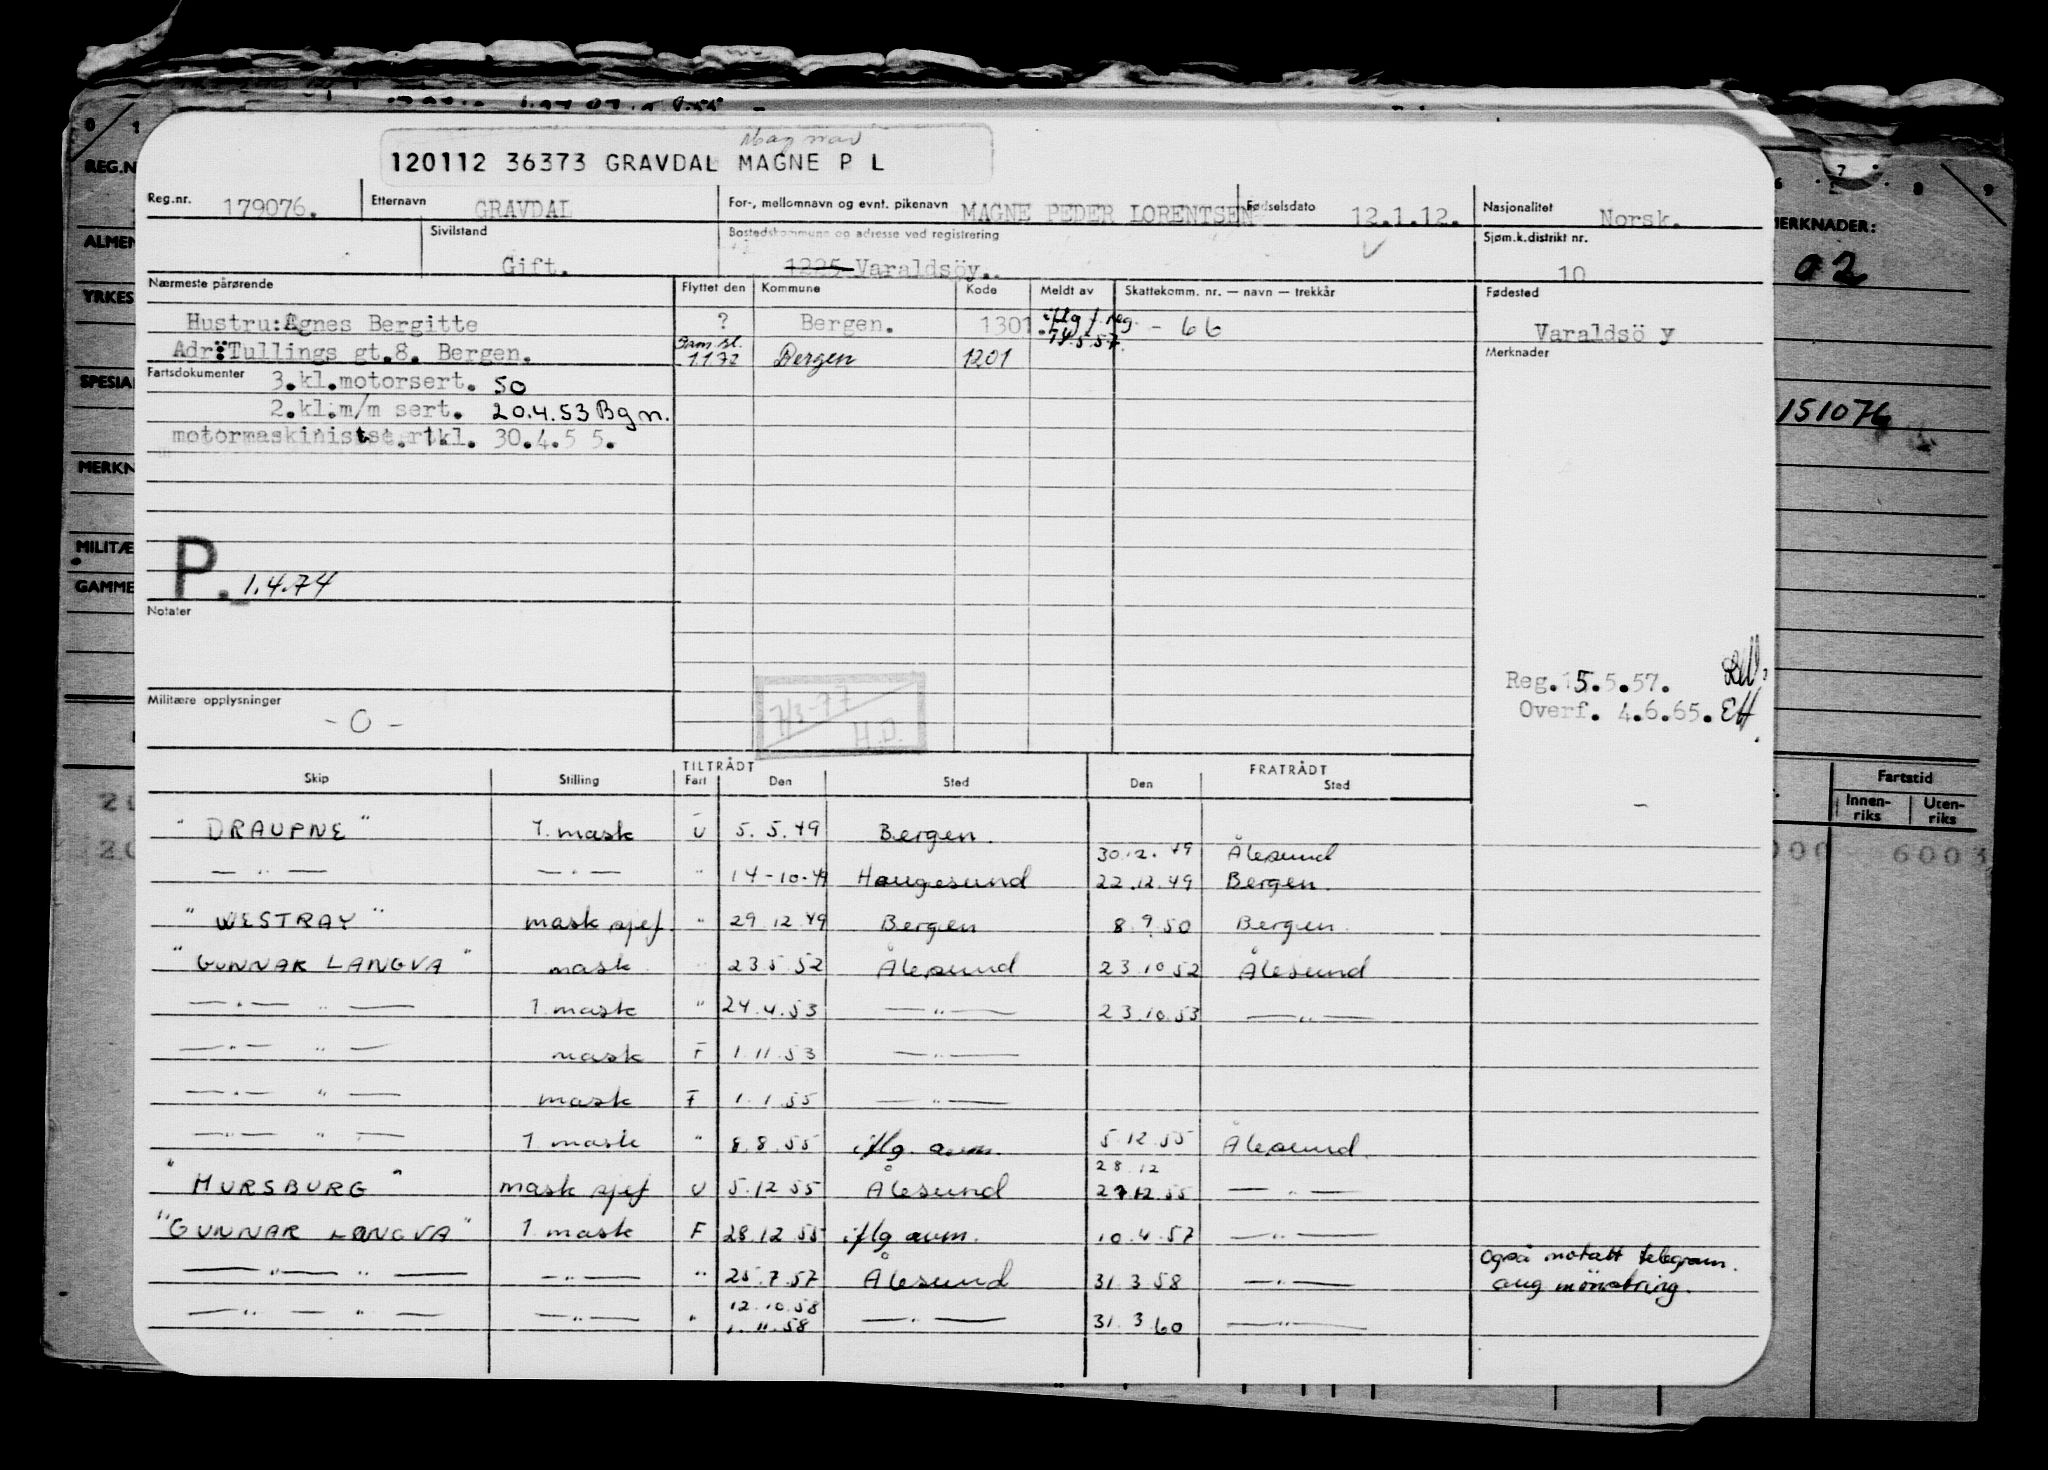 Magnar
120112 36373 GRAVDAL MAGNE P L
Reg.nr. 179076. Etternavn GRAVDAL For-, mellomnavn og evnt. pikenavn MAGNE PEDER LORENTSEN Fødselsdato 12.1.12. Nasjonalitet Norsk.
Sivilstand Gift. Bostedskommune og adresse ved registrering 1225 Varaldsöy. Sjøm.k.distrikt nr. 10
Nærmeste pårørende Flyttet den Kommune Kode Meldt av Skattekomm. nr. — navn — trekkår Fødested
Hustru: Agnes Bergitte ? Bergen. 1301 iflg f. reg. 14.5.57. - 66 Varaldsö y
Adr: Tullings gt.8. Bergen. Sam.sl. 1.1.72 Bergen 1201 Merknader
Fartsdokumenter 3.kl.motorsert. 50
2.kl.m/m sert. 20.4.53 Bgn.
motormaskinistsert. 1kl. 30.4.55.
P. 1.4.74
Notater
Reg. 15.5.57.
Militære opplysninger
- 0 -
7/3-77
H.D.
Overf. 4.6.65. EH
TILTRÅDT FRATRÅDT
Skip Stilling Fart Den Sted Den Sted
"DRAUPNE" 1. mask U 5.5.49 Bergen. 30.12.49 Ålesund
— " — — " — " 14-10-49 Haugesund 22.12.49 Bergen.
"WESTRAY" mask sjef " 29.12.49 Bergen 8.9.50 Bergen.
"GUNNAR LANGVA" mask " 23.5.52 Ålesund 23.10.52 Ålesund
— " — " — 1 mask " 24.4.53 — " — 23.10.53 — " —
— " — " — mask F 1.11.53 — " —
— " — " — mask F 1.1.55 — " —
— " — " — 1 mask " 8.8.55 iflg. avm. 5.12.55 Ålesund.
28.12
"HURSBURG" mask sjef U 5.12.55 Ålesund 27.12.55 — " —
"GUNNAR LANGVA" 1 mask F 28.12.55 iflg avm. 10.4.57 — " —
— " — " — — " — " 25.7.57 Ålesund 31.3.58 — " — også motatt telegram. ang mönstring.
12.10.58
— " — " — — " — " 1.11.58 — " — 31.3.60 — " —
0 1
REG.N
ALMEN
YRKES
SPESIA
MERKN
MILITÆ
GAMME
7 8 9
MERKNADER:
02
151076
Fartstid
Innen-riks Uten-riks
000 6003